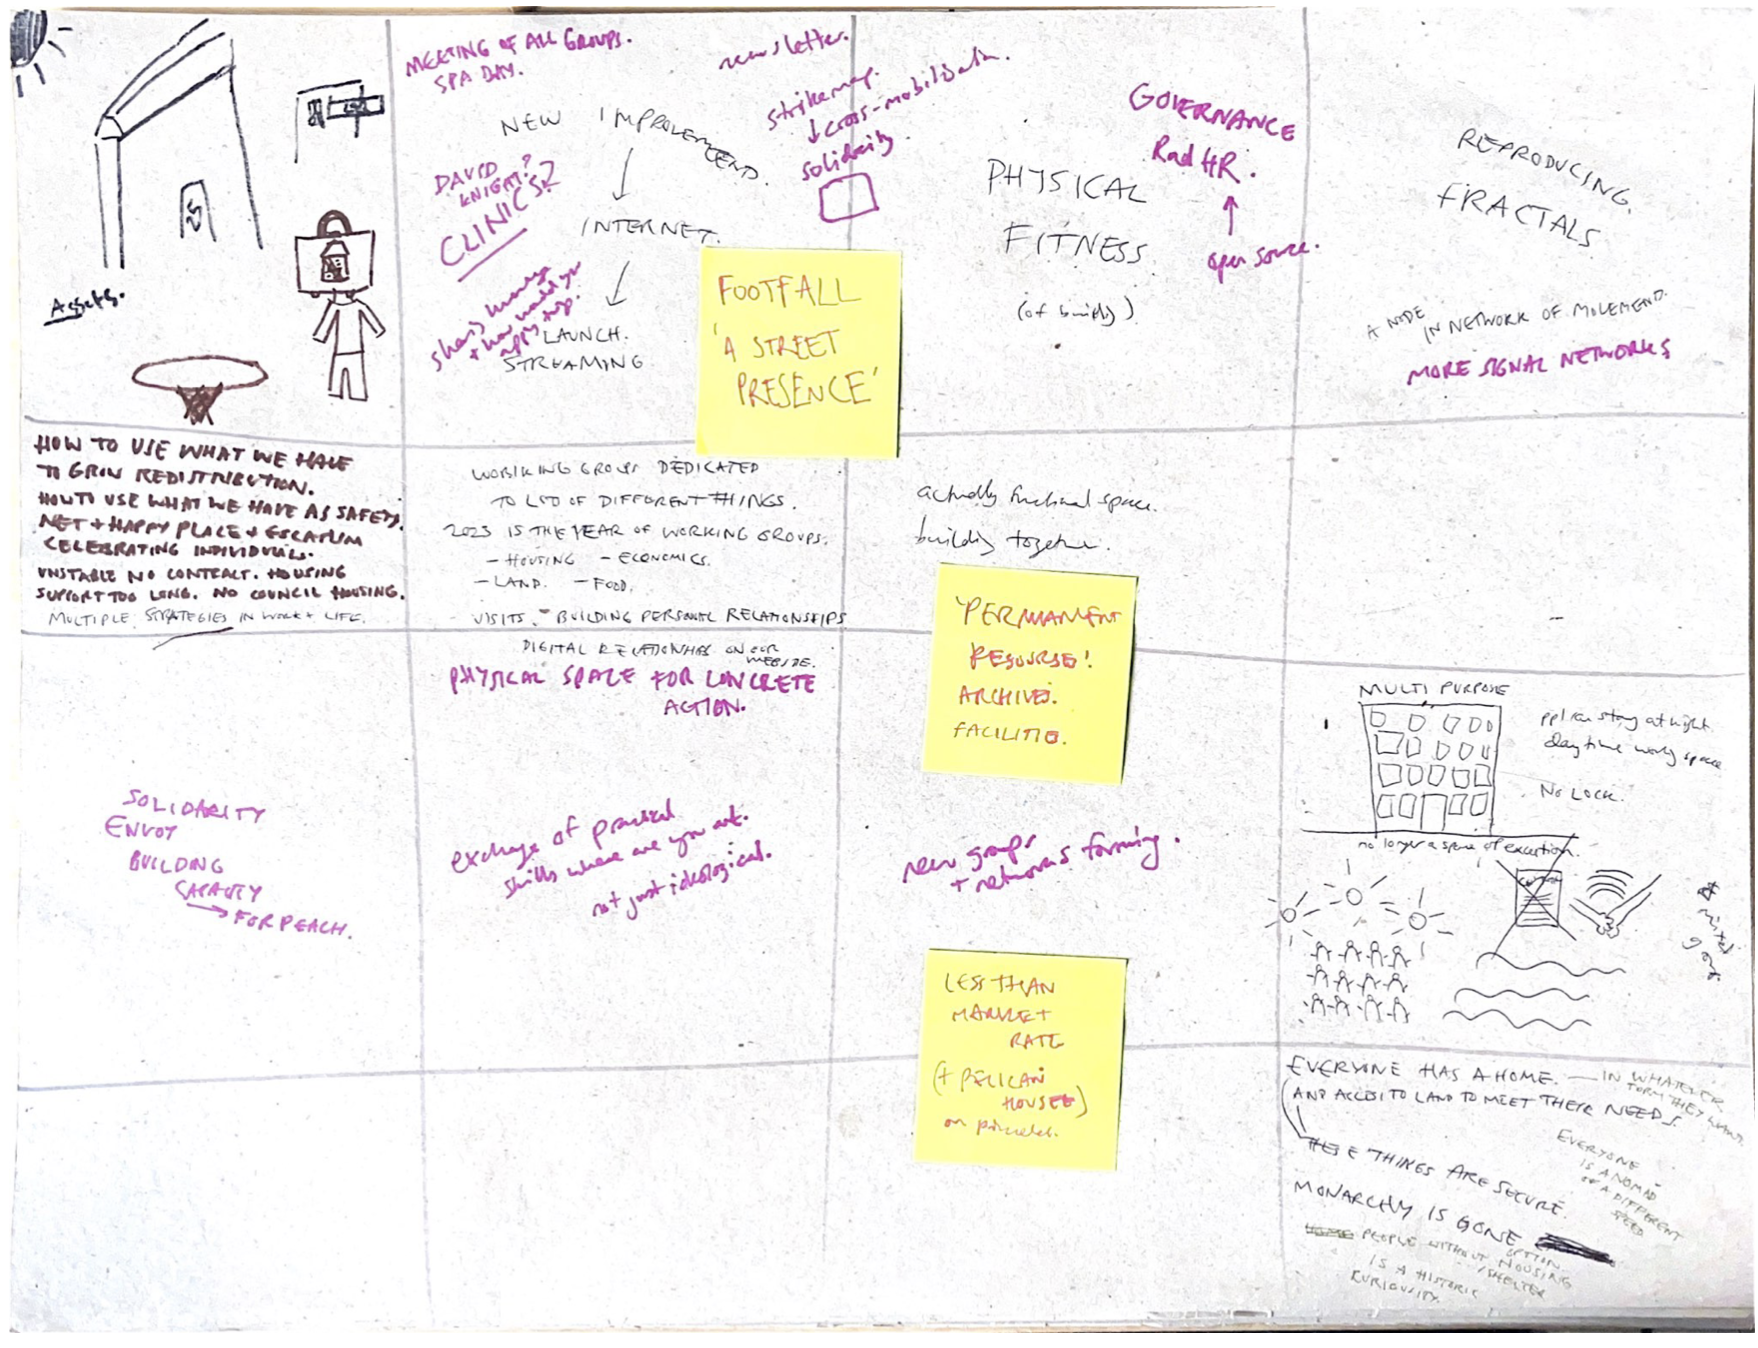 Assets.
MEETING OF ALL GROUPS.
SPA DAY.
NEW IMPROVEMEND.
INTERNET.
LAUNCH.
STREAMING
DAVID
KNIGHT?
CLINICS?
newsletter.
strike map.
cross-mobilisation.
solidarity
FOOTFALL
'A STREET
PRESENCE'
GOVERNANCE
Rad HR.
open source.
PHYSICAL
FITNESS
REPRODUCING.
FRACTALS
A NODE IN NETWORK OF MOVEMEND.
MORE SIGNAL NETWORKS
HOW TO USE WHAT WE HAVE
REDISTRIBUTION.
HOW TO USE WHAT WE HAVE AS SAFETY.
NET + HAPPY PLACE +
CELEBRATING INDIVIDUALS.
UNSTABLE NO CONTRACT. HOUSING
SUPPORT TOO LONG. NO COUNCIL HOUSING.
MULTIPLE STRATEGIES IN WORK + LIFE.
WORKING GROUPS DEDICATED
TO OF DIFFERENT THINGS.
2023 IS THE YEAR OF WORKING GROUPS.
- HOUSING - ECONOMICS.
- LAND. - FOOD.
VISITS. - BUILDING PERSONAL RELATIONSHIPS
DIGITAL RELATIONSHIPS ON OUR
WEBSITE.
PHYSICAL SPACE FOR CONCRETE
ACTION.
actually functional space.
building together.
'PERMANENT
RESOURSE'.
ARCHIVES.
MULTI PURPOSE
ppl can stay at night.
day time work space
NO LOCK.
no longer a space of exception.
SOLIDARITY
ENVOY
BUILDING
CAPACITY
→ FOR PEACH.
exchange of practical
skills where are you at.
not just ideological.
new groups
+ networks forming.
LESS THAN
MARKET
RATE
(+ PELICAN
HOUSE)
EVERYONE HAS A HOME. — IN WHATEVER
FORM THEY WANT.
(AND ACCESS TO LAND TO MEET THEIR NEEDS.
THESE THINGS ARE SECURE.
EVERYONE
IS A NOMAD
OF A DIFFERENT
SPEED
MONARCHY IS GONE
PEOPLE WITHOUT OPTION
HOUSING
/SHELTER
IS A HISTORIC
CURIOUSITY.